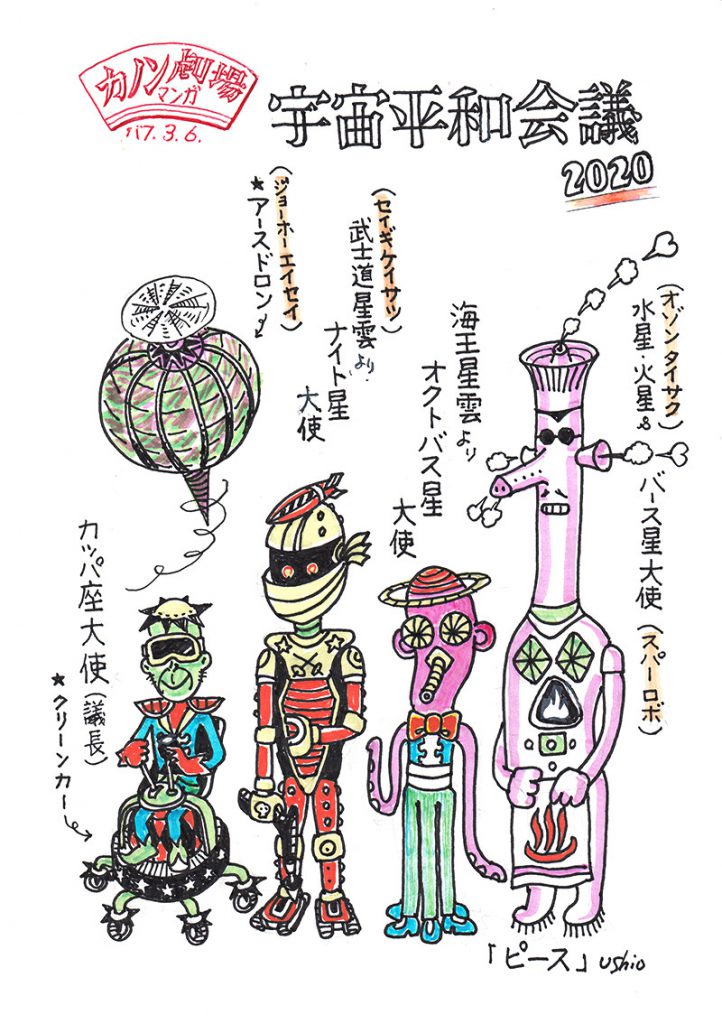 カノン劇場
マンガ
'17.3.6.
宇宙平和会議
2020
(オゾンタイサク)
水星・火星&
バース星大使
(スパーロボ)
海王星雲より
オクトバス星
大使
(セイギケイサツ)
武士道星雲より
ナイト星
大使
(ジョーホーエイセイ)
★アースドロン
カッパ座大使(議長)
★クリーンカー
「ピース」 ushio